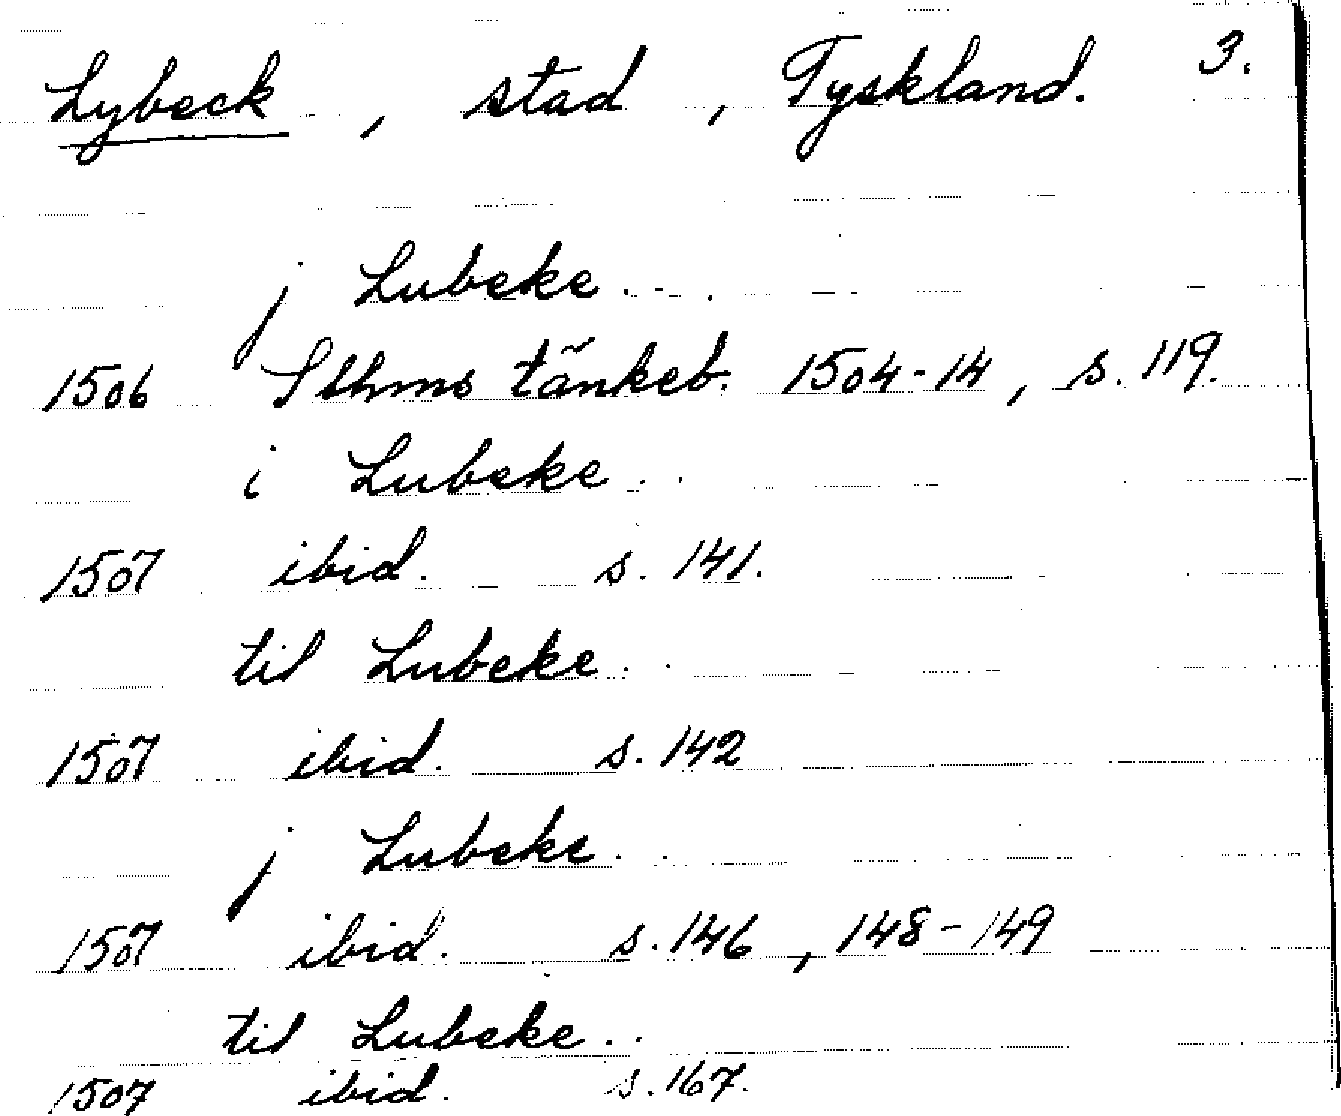 Lybeck, stad, Tyskland. 3.
j Lubeke
1506 Sthms tänkeb. 1504-14, s. 119.
i Lubeke
1507 ibid. s. 141.
til Lubeke
1507 ibid. s. 142
j Lubeke
1507 ibid. s. 146, 148-149
til Lubeke
1507 ibid. s. 167.